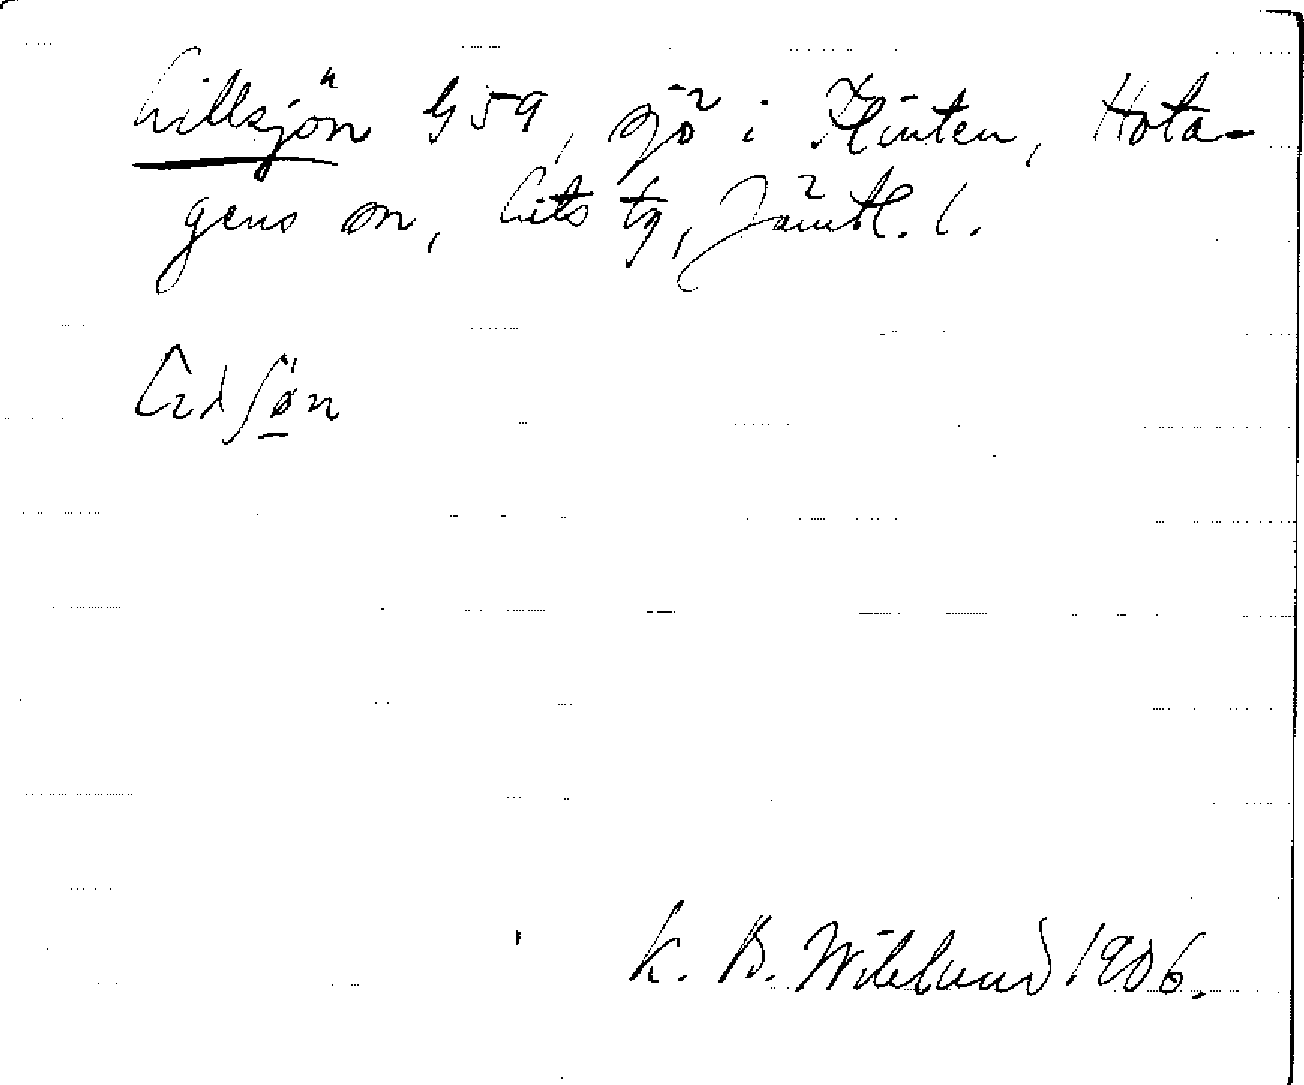 Lillsjön G59, sjö i Flinten, Hota-
gens sn, Lits tg, Jämtl. l.
K. B. Wiklund 1906.